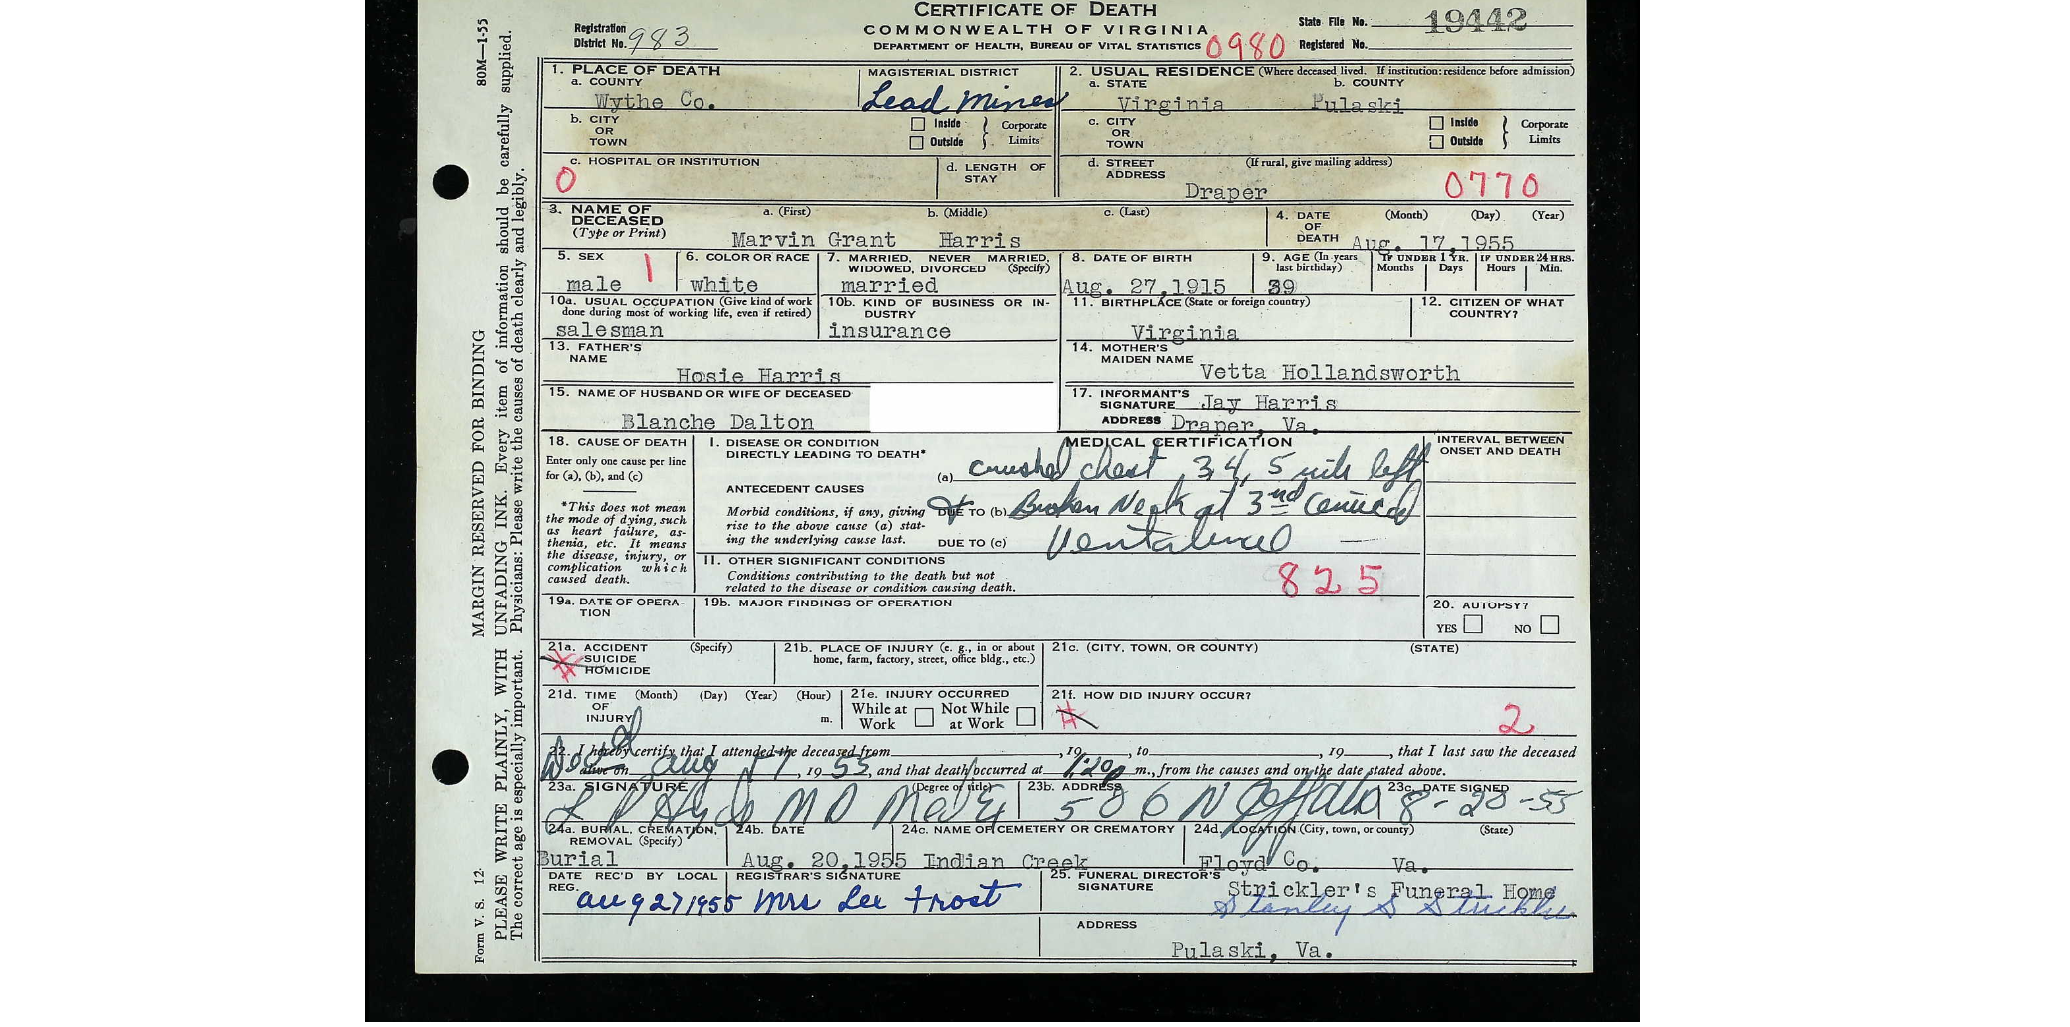 CERTIFICATE OF DEATH
COMMONWEALTH OF VIRGINIA
DEPARTMENT OF HEALTH, BUREAU OF VITAL STATISTICS 0980
Registration District No. 983
State File No. 19442
Registered No.
80M—1-55
MARGIN RESERVED FOR BINDING
PLEASE WRITE PLAINLY, WITH UNFADING INK. Every item of information should be carefully supplied.
The correct age is especially important. Physicians: Please write the causes of death clearly and legibly.
Form V. S. 12
1. PLACE OF DEATH
a. COUNTY
Wythe Co.
MAGISTERIAL DISTRICT
Lead Mines
2. USUAL RESIDENCE (Where deceased lived. If institution: residence before admission)
a. STATE
Virginia
b. COUNTY
Pulaski
b. CITY OR TOWN
Inside
Outside
Corporate Limits
c. CITY OR TOWN
Inside
Outside
Corporate Limits
c. HOSPITAL OR INSTITUTION
0
d. LENGTH OF STAY
d. STREET ADDRESS
(If rural, give mailing address)
Draper
0770
3. NAME OF DECEASED
(Type or Print)
a. (First)
b. (Middle)
c. (Last)
Marvin Grant Harris
4. DATE OF DEATH
(Month) (Day) (Year)
Aug. 17,1955
5. SEX
male 1
6. COLOR OR RACE
white
7. MARRIED, NEVER MARRIED, WIDOWED, DIVORCED (Specify)
married
8. DATE OF BIRTH
Aug. 27,1915
9. AGE (In years last birthday)
39
IF UNDER 1 YR.
Months Days
IF UNDER 24 HRS.
Hours Min.
10a. USUAL OCCUPATION (Give kind of work done during most of working life, even if retired)
salesman
10b. KIND OF BUSINESS OR INDUSTRY
insurance
11. BIRTHPLACE (State or foreign country)
Virginia
12. CITIZEN OF WHAT COUNTRY?
13. FATHER'S NAME
Hosie Harris
14. MOTHER'S MAIDEN NAME
Vetta Hollandsworth
15. NAME OF HUSBAND OR WIFE OF DECEASED
Blanche Dalton
17. INFORMANT'S SIGNATURE Jay Harris
ADDRESS Draper, Va.
18. CAUSE OF DEATH
Enter only one cause per line for (a), (b), and (c)
*This does not mean the mode of dying, such as heart failure, asthenia, etc. It means the disease, injury, or complication which caused death.
MEDICAL CERTIFICATION
I. DISEASE OR CONDITION DIRECTLY LEADING TO DEATH*
(a) crushed chest 3, 4, 5 left
ANTECEDENT CAUSES
Morbid conditions, if any, giving rise to the above cause (a) stating the underlying cause last.
DUE TO (b) Broken Neck at 3nd Cervical
DUE TO (c)
INTERVAL BETWEEN ONSET AND DEATH
II. OTHER SIGNIFICANT CONDITIONS
Conditions contributing to the death but not related to the disease or condition causing death.
825
19a. DATE OF OPERATION
19b. MAJOR FINDINGS OF OPERATION
20. AUTOPSY?
YES NO
21a. ACCIDENT SUICIDE HOMICIDE (Specify)
21b. PLACE OF INJURY (e. g., in or about home, farm, factory, street, office bldg., etc.)
21c. (CITY, TOWN, OR COUNTY)
(STATE)
21d. TIME OF INJURY (Month) (Day) (Year) (Hour) m.
21e. INJURY OCCURRED
While at Work
Not While at Work
21f. HOW DID INJURY OCCUR?
2
22. I hereby certify that I attended the deceased from , 19 , to , 19 , that I last saw the deceased
alive on Aug 17, 1955, and that death occurred at 1:20p m., from the causes and on the date stated above.
23a. SIGNATURE (Degree or title)
MD
23b. ADDRESS
506 N
23c. DATE SIGNED
8-20-55
24a. BURIAL, CREMATION, REMOVAL (Specify)
Burial
24b. DATE
Aug. 20,1955
24c. NAME OF CEMETERY OR CREMATORY
Indian Creek
24d. LOCATION (City, town, or county) (State)
Floyd Co. Va.
DATE REC'D BY LOCAL REG.
Aug 27 1955
REGISTRAR'S SIGNATURE
Mrs Lee Frost
25. FUNERAL DIRECTOR'S SIGNATURE
Strickler's Funeral Home
Stanley S Strickler
ADDRESS
Pulaski, Va.